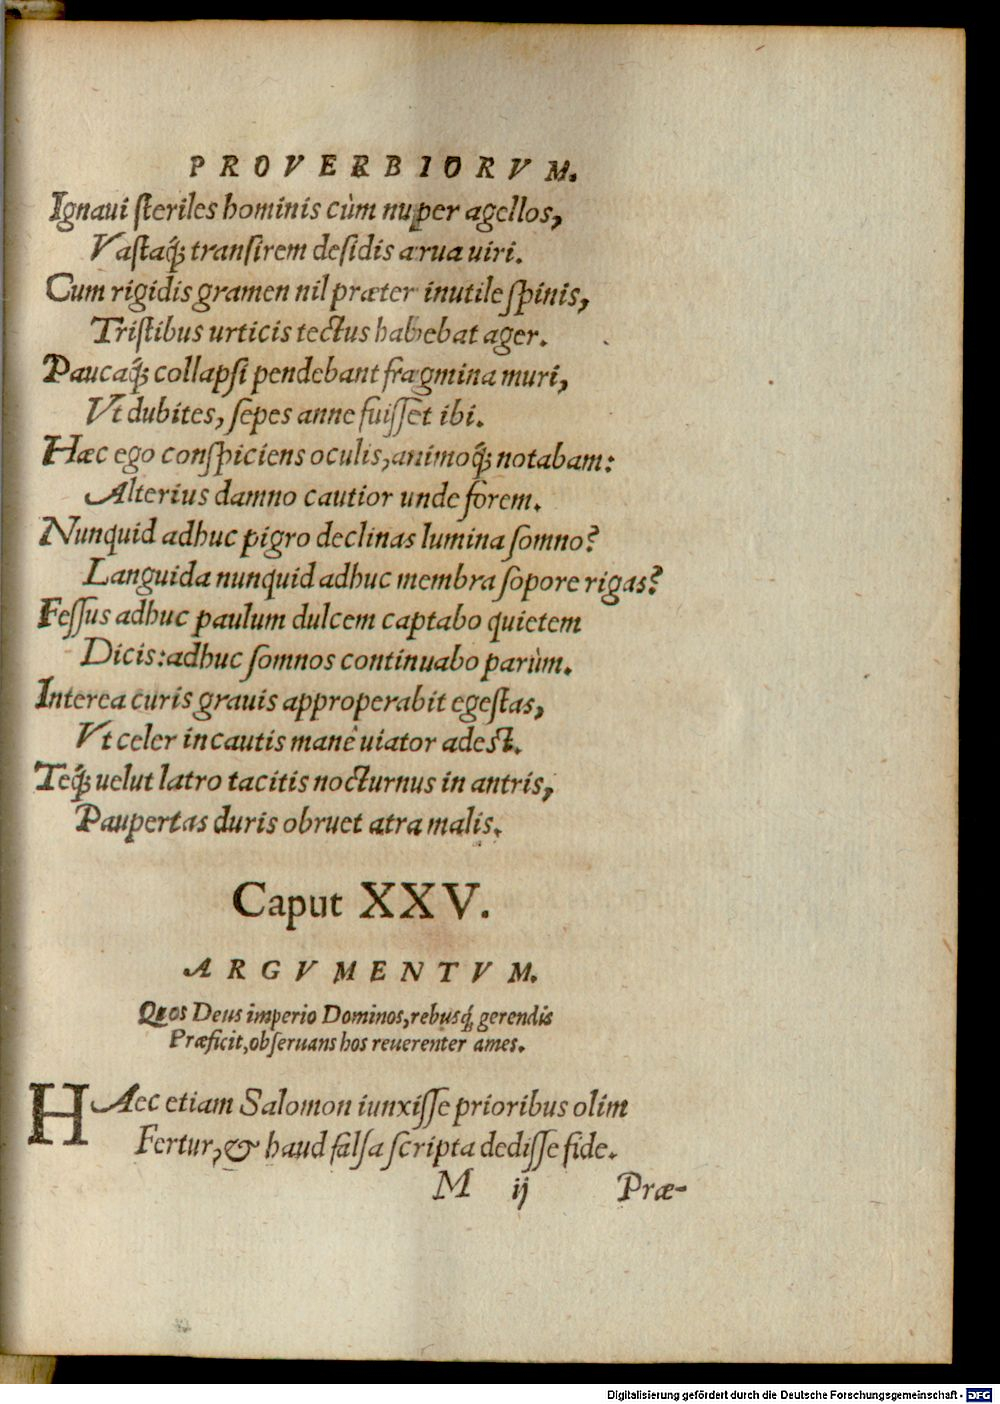 PROVERBIORVM.
Ignaui ſteriles hominis cùm nuper agellos,
Vaſtaq́; tranſirem deſidis arua uiri.
Cum rigidis gramen nil præter inutile ſpinis,
Triſtibus urticis tectus habebat ager.
Paucaq́; collapſi pendebant fragmina muri,
Vt dubites, ſepes anne fuiſſet ibi.
Hæc ego conſpiciens oculis, animoq́; notabam:
Alterius damno cautior unde forem.
Nunquid adhuc pigro declinas lumina ſomno?
Languida nunquid adhuc membra ſopore rigas?
Feſſus adhuc paulum dulcem captabo quietem
Dicis: adhuc ſomnos continuabo parùm.
Interea curis grauis approperabit egeſtas,
Vt celer incautis manè uiator adeſt.
Teq́; uelut latro tacitis nocturnus in antris,
Paupertas duris obruet atra malis.
Caput XXV.
ARGVMENTVM.
Quos Deus imperio Dominos, rebusq́; gerendis
Præficit, obſeruans hos reuerenter ames.
HAec etiam Salomon iunxiſſe prioribus olim
Fertur, & haud falſa ſcripta dediſſe fide.
M ij Præ-
Digitalisierung gefördert durch die Deutsche Forschungsgemeinschaft - DFG